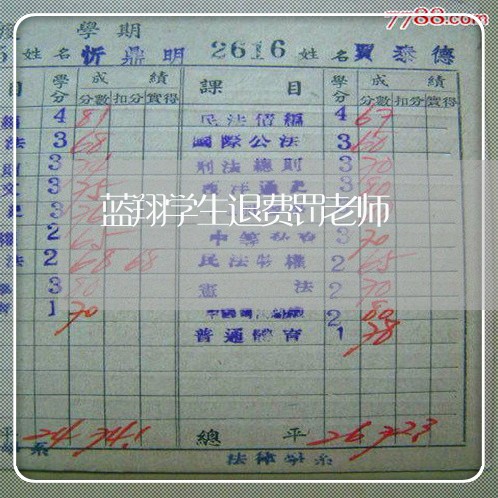 7788.com
學期
姓名 忻鼎明 2616 姓名 賈泰德
目 學分 成績 課目 學分 成績
分數 扣分 實得 分數 扣分 實得
4 81 民法債編 4 67
法 3 68 國際公法 3 60
3 刑法總則 3 70
3 75 西洋通史 3 80
蓝翔学生退费罚老师
2 65 3 70
法 2 68 68 民法物權 2 65
3 80 憲法 2 70
1 70 2 80
普通體育 1 78
平 24 74.1 總平 26 72.3
系 法律學系